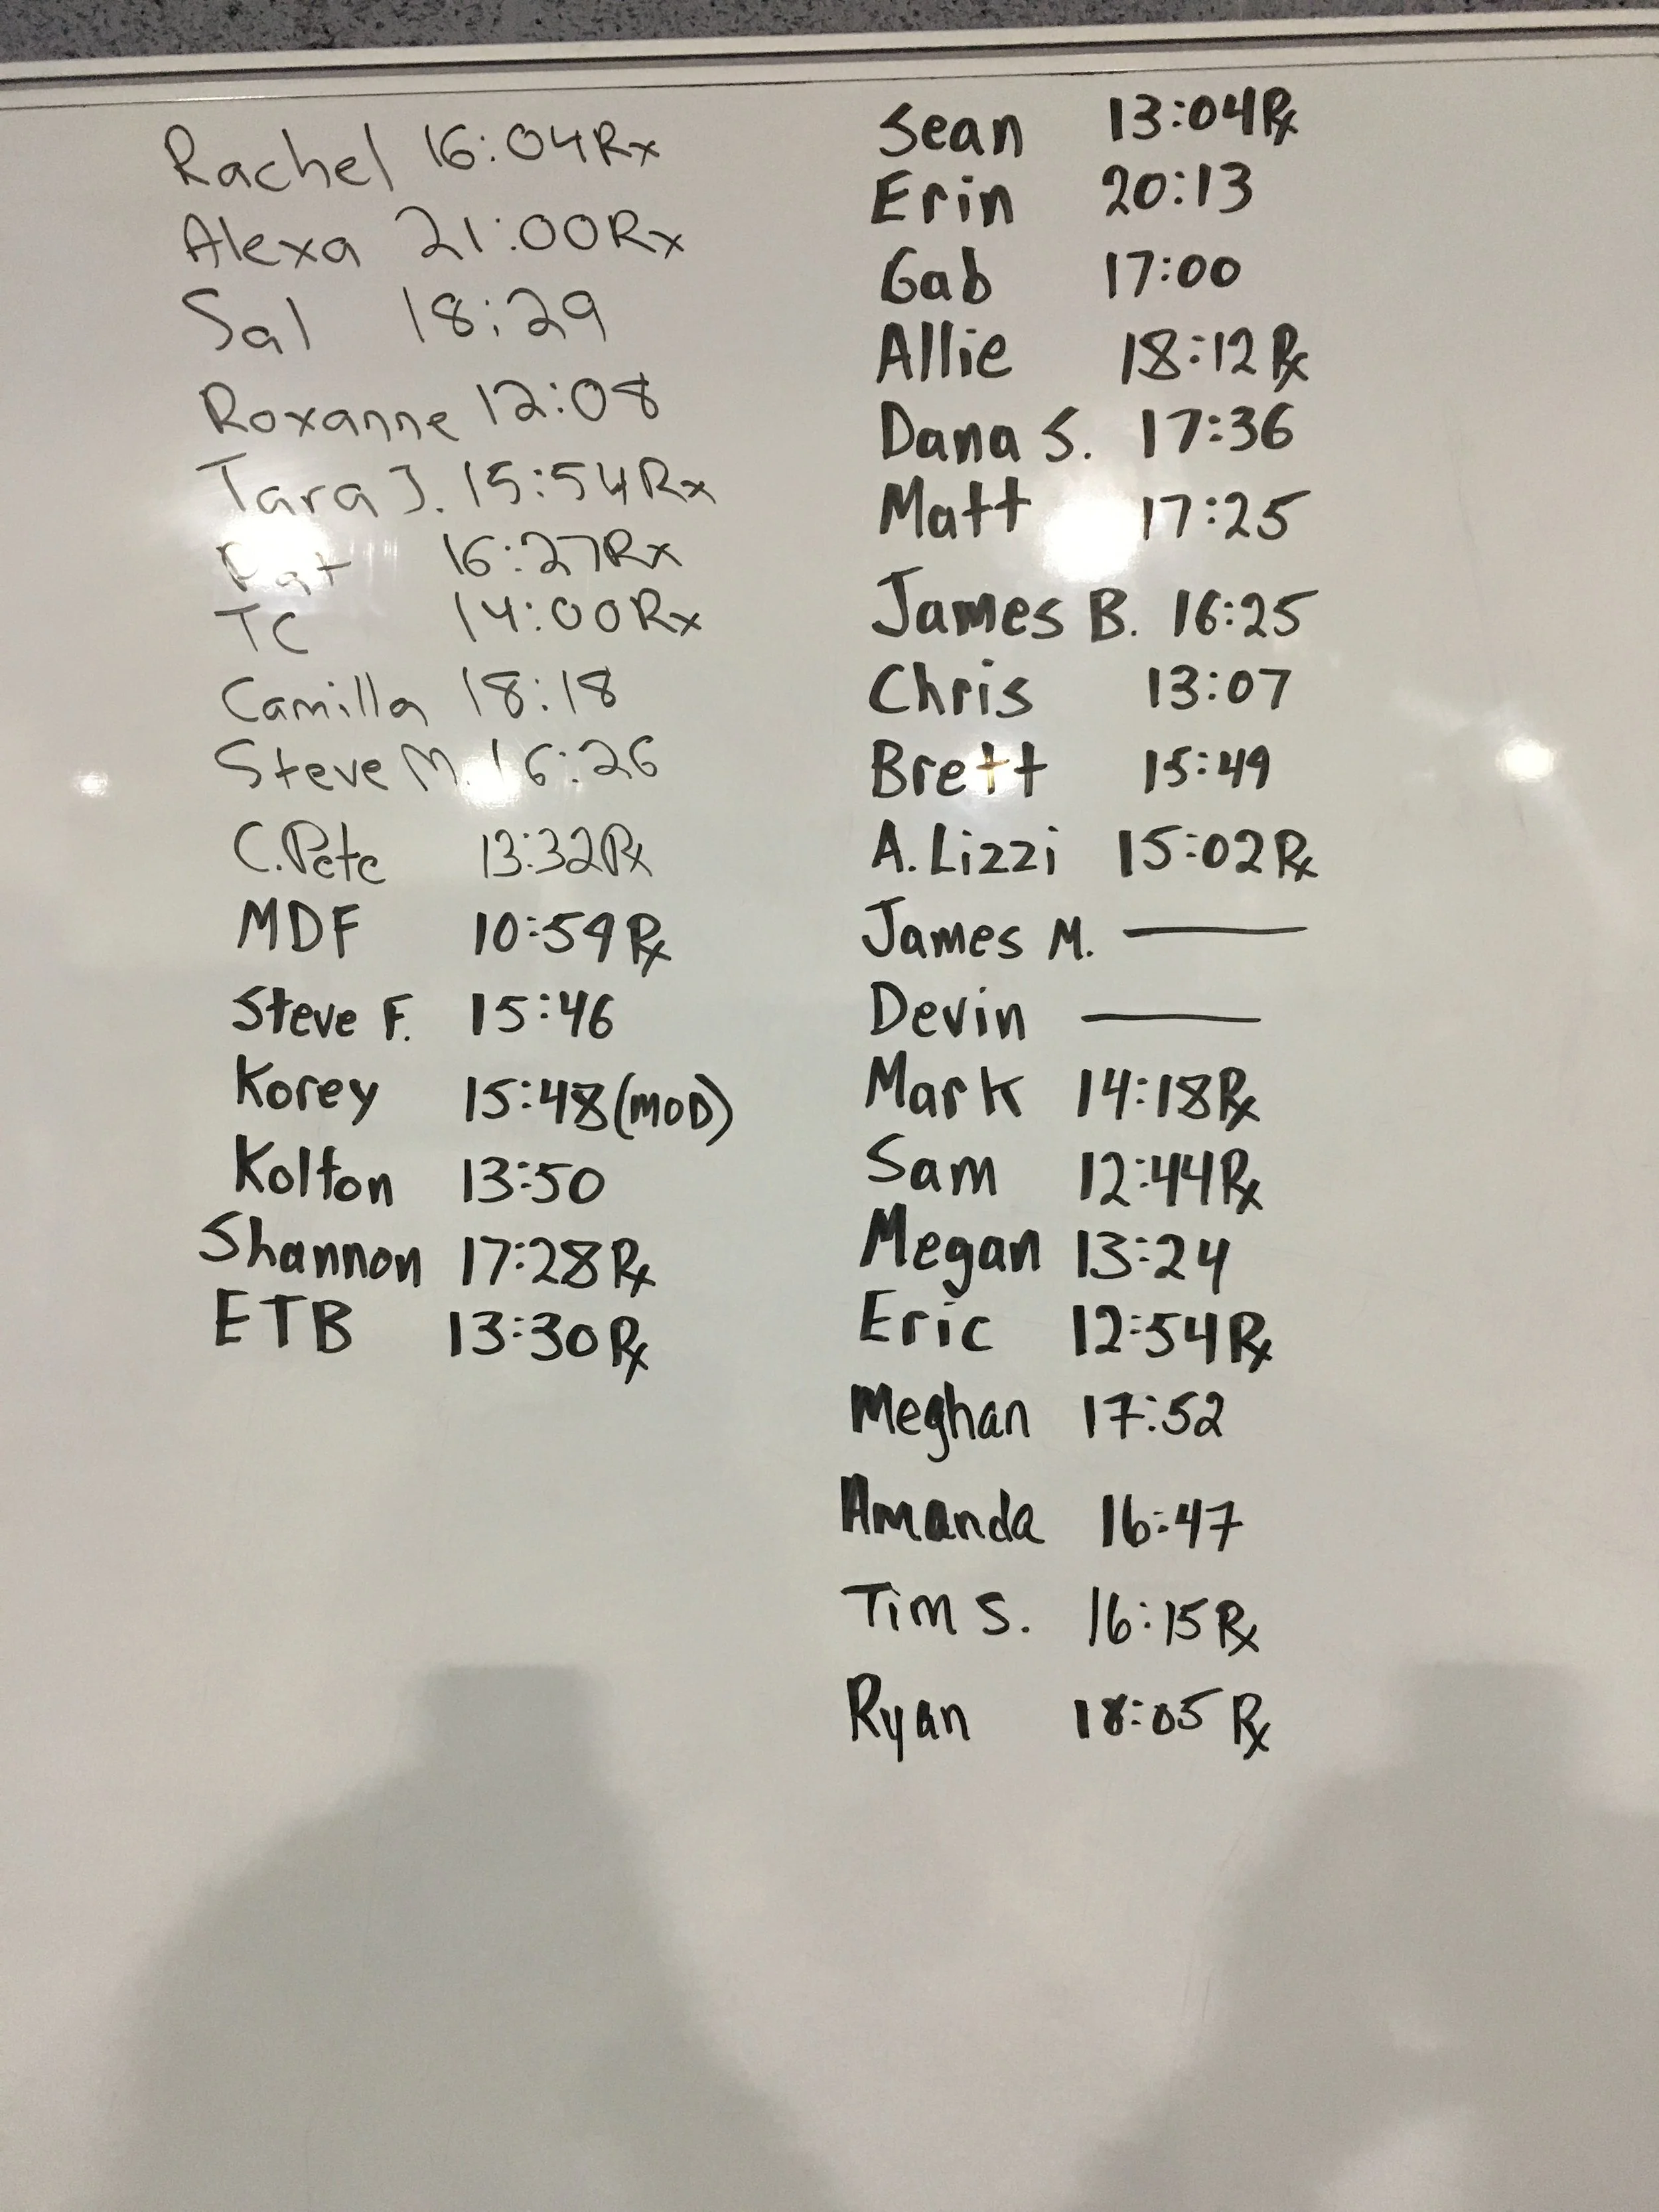 Rachel 16:04 Rx
Alexa 21:00 Rx
Sal 18:29
Roxanne 12:08
Tara J. 15:54 Rx
Pat 16:27 Rx
TC 14:00 Rx
Camilla 18:18
Steve M. 16:26
C.Pete 13:32 Rx
MDF 10:59 Rx
Steve F. 15:46
Korey 15:48 (MOD)
Kolton 13:50
Shannon 17:28 Rx
ETB 13:30 Rx
Sean 13:04 Rx
Erin 20:13
Gab 17:00
Allie 18:12 Rx
Dana S. 17:36
Matt 17:25
James B. 16:25
Chris 13:07
Brett 15:49
A. Lizzi 15:02 Rx
James M. —
Devin —
Mark 14:18 Rx
Sam 12:44 Rx
Megan 13:24
Eric 12:54 Rx
Meghan 17:52
Amanda 16:47
Tim S. 16:15 Rx
Ryan 18:05 Rx